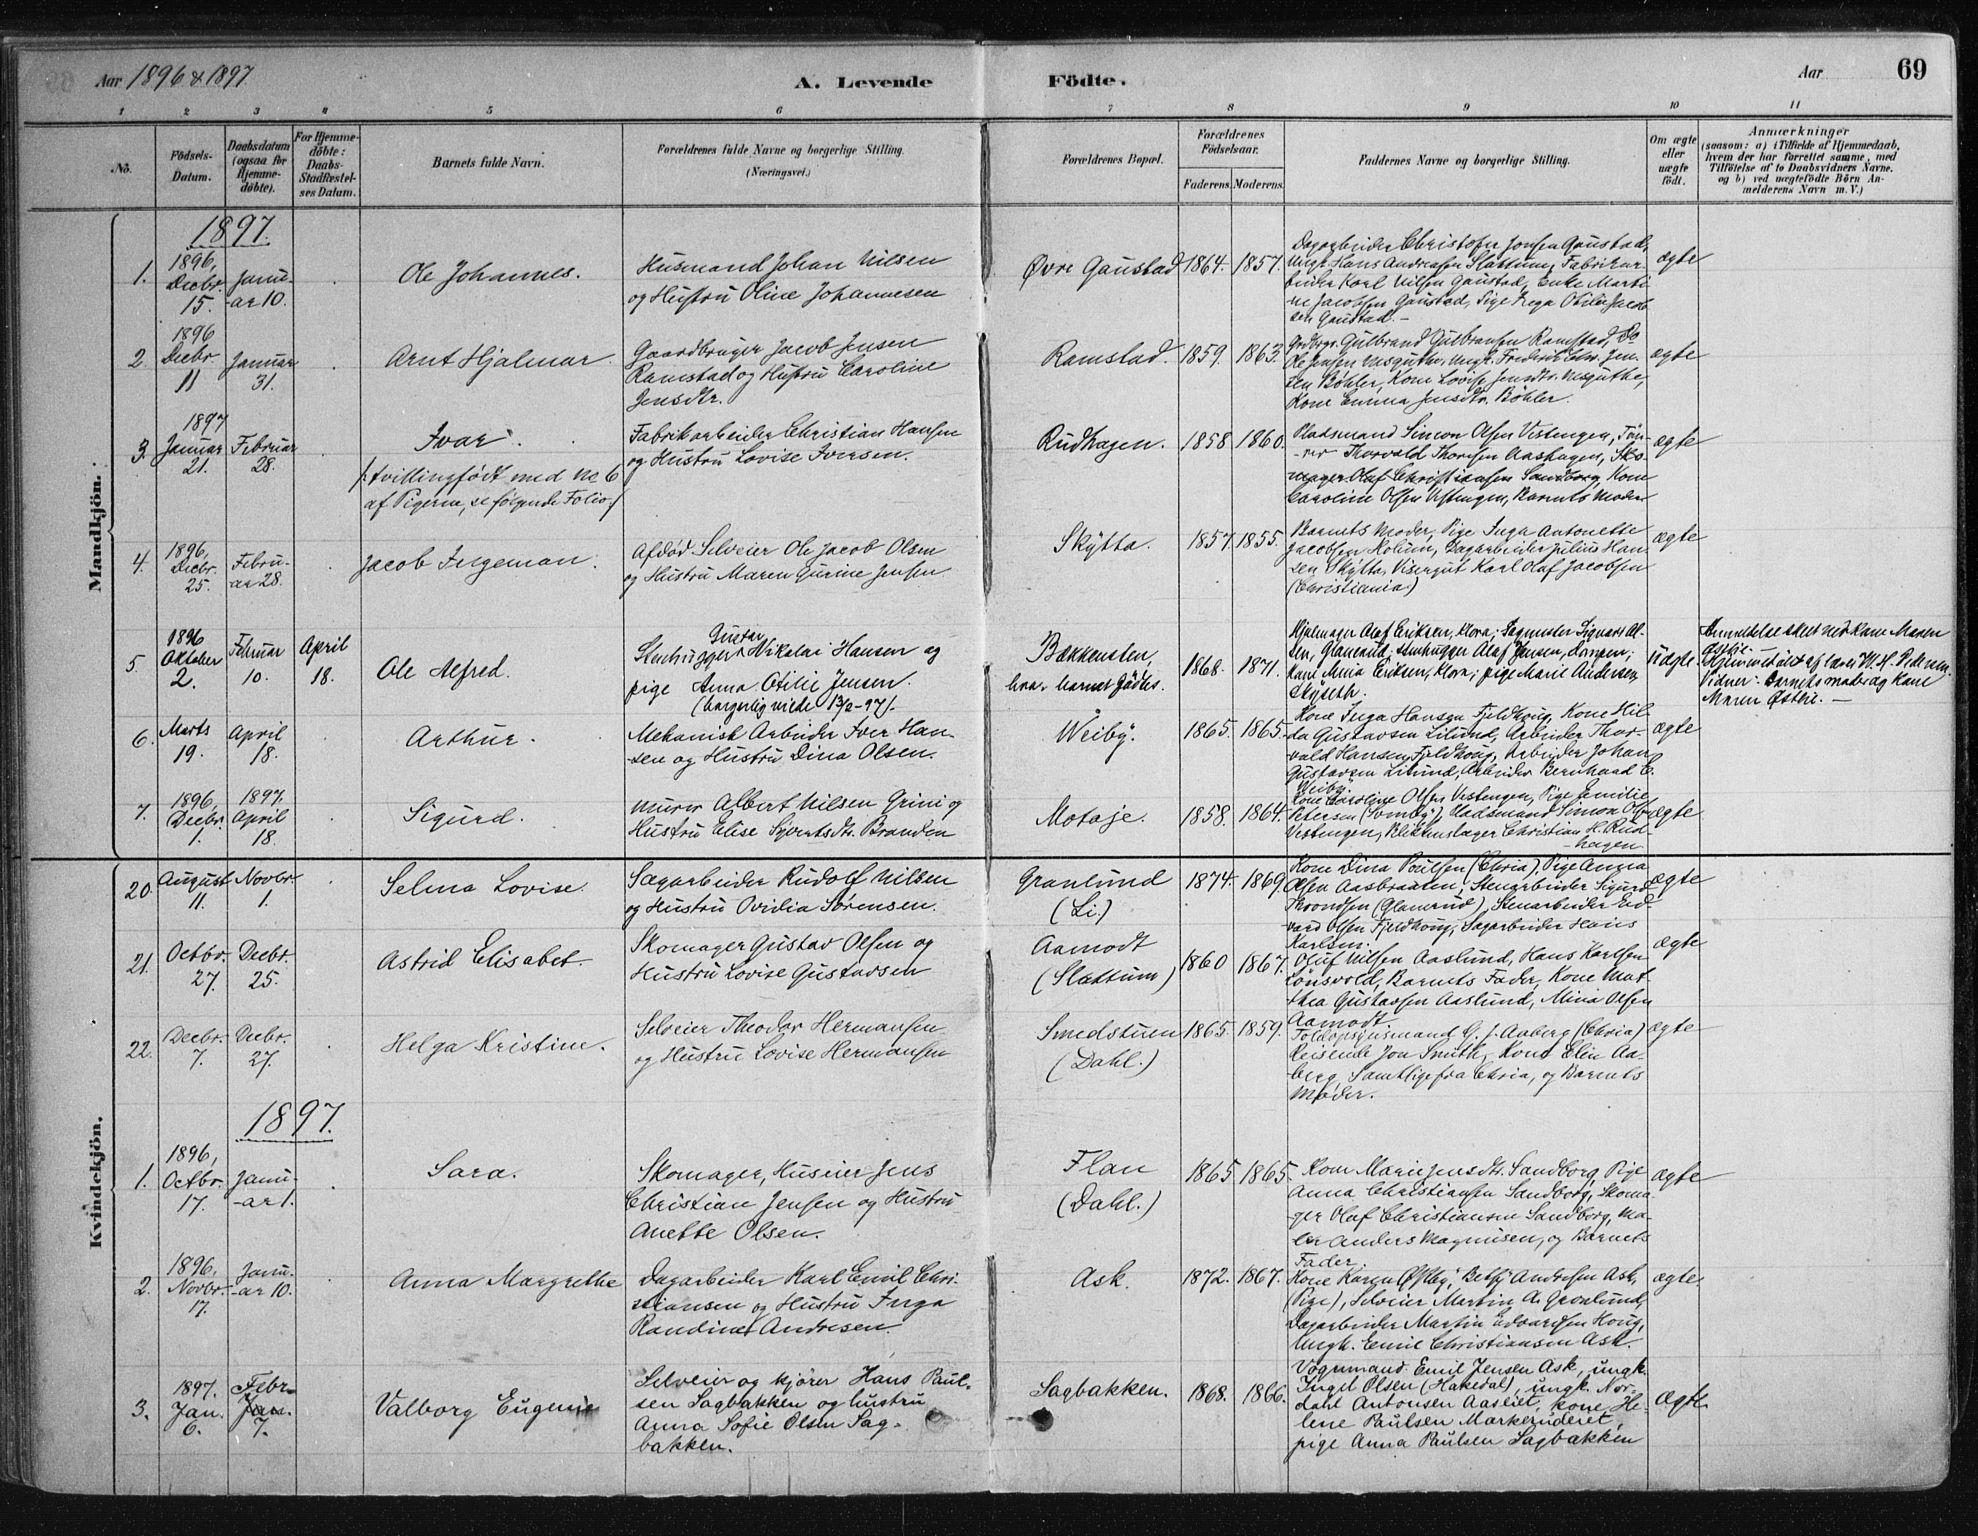 Aar 1896 & 1897.
A. Levende Födte.
Aar 69
1 2 3 4 5 6 7 8 9 10 11
No.
Födsels-Datum.
Daabsdatum (ogsaa for Hjemmedöbte).
For Hjemmedöbte: Daabs-Stadfæstelses Datum.
Barnets fulde Navn.
Forældrenes fulde Navne og borgerlige Stilling.
(Næringsvei.)
Forældrenes Bopæl.
Forældrenes Födselsaar.
Faderens. Moderens.
Faddernes Navne og borgerlige Stilling.
Om ægte eller uægte født.
Anmærkninger
(saasom: a) i Tilfælde af Hjemmedaab, hvem der har forrettet samme, med Tilföielse af to Daabsvidners Navne, og b) ved uægtefödte Börn Anmelderens Navn m. V.)
Mandkjön.
1897.
1. 1896, Decbr. 15. Januar 10. Ole Johannes. Husmand Johan Nilsen og Hustru Oline Johannesen Øvre Gaustad 1864. 1857. Dagarbeider Christofer Jonsen Gaustad, Ungk. Hans Andreasen Slattum, Fabrikarbeider Karl Nilsen Gaustad, Enke Martine Jacobsen Gaustad, Pige Inga Otilie Jacobsen Gaustad. - ægte
2. 1896 Decbr. 11 Januar 31. Arnt Hjalmar. Gaardbruger Jacob Jensen Ramstad og Hustru Caroline Jensdtr. Ramstad. 1859. 1863. Gulbrand Gulbransen Ramstad, Do Ole Jensen Nesguthe, Ungk. Frederik Chr. Jensen Bøhler, Kone Lovise Jensdtr. Nesguthe, Kone Emma Jensdtr. Bøhler. ægte
3. 1897 Januar 21. Februar 28. Ivar. (tvillingfødt med No 6 af Pigerne, se følgende Folio.) Fabrikarbeider Christian Hansen og Hustru Lovise Iversen. Rudhagen. 1858 1860. Pladsmand Simon Olsen Vestengen, Thorvald Thoresen Aashagen, Skomager Olaf Christiansen Sandborg, Kone Caroline Olsen Vestengen, Barnets Moder ægte
4. 1896, Decbr. 25. Februar 28. Jacob Ingeman. Afdød Selveier Ole Jacob Olsen og Hustru Maren Gurine Jensen Skytta. 1857. 1855. Barnets Moder, Pige Inga Antonette Jacobsen Holum, Dagarbeider Julius Hansen Skytta, Visergut Karl Olaf Jacobsen (Christiania) ægte
5. 1896 Oktober 2. Februar 10. April 18. Ole Alfred. Stenhugger Gustav Nikolai Hansen og pige Anna Otilie Jensen (borgerlig viede 13/2-97). Bækkensten, hvor barnet fødtes. 1868. 1871. Hjulmager Olaf Eriksen, Mora; Sagmester Sigvart Olsen, Glamerud; stenhugger Olaf Jensen, kone Anna Eriksen, Mora; pige Marie Andersen, Skyseth. Uægte. Anmeldelse skeet ved kone Maren Østlie. - Hjemmedøbt af lærer M. H. Pedersen. Vidner: barnets moder og kone Maren Østlie. -
6. Marts 19. April 18. Arthur. Mekanisk Arbeider Iver Hansen og Hustru Dina Olsen. Weiby. 1865. 1865. Kone Inga Hansen Fjeldhoug, Kone Hilda Gustavsen Lilund, Arbeider Thorvald Hansen Fjeldhoug, Arbeider Johan Gustavsen Lilund, Arbeider Bernhard E. Weiby. ægte
7. 1896, Decbr. 1. 1897. April 18. Sigurd. Murer Albert Nilsen Grini og Hustru Elise Syvertsdtr. Branden Motaje. 1858. 1864. Kone Caroline Olsen Vestengen, Pige Emilie Petersen, Pladsmand Simon Olsen Vestengen, Blikkenslager Christian H. Rudhagen ægte.
Kvindekjön.
20. August 11. Novbr. 1. Selma Lovise. Sagarbeider Rudolf Nilsen og Hustru Ovidia Sørensen. Granlund (Li.) 1874. 1869. Kone Dina Poulsen (Chria), Pige Anna Olsen Aasbraaten, Stenarbeider Sigurd Throndsen (Glamerud), Stenarbeider Edvard Olsen Fjeldhoug, Sagarbeider Hans Karlsen. ægte
21. Octbr. 27. Decbr. 25. Astrid Elisabet. Skomager Gustav Olsen og Hustru Lovise Gustavsen Aamodt (Slattum) 1860 1867. Oluf Nilsen Aaslund, Hans Karlsen Lønsvold, Barnets Fader, Kone Mathea Gustavsen Aaslund, Mina Olsen Aamodt. ægte
22. Decbr. 7. Decbr. 27. Helga Kristine. Selveier Theodor Hermansen og Hustru Lovise Hermansen Smedstuen (Dahl.) 1865. 1859. G. J. Aaberg (Chria) Reisende Jon Smith, Kone Elin Aaberg, Samtlige fra Chria, og Barnets Moder. ægte
1897.
1. 1896, Octbr. 17. Januar 1. Sara. Skomager, Huseier Jens Christian Jensen og Hustru Anette Olsen. Flan (Dahl.) 1865 1865. Kone Marie Jensdtr. Sandborg, Pige Anna Christiansen Sandborg, Skomager Olaf Christiansen Sandborg, Maler Anders Magnusen, og Barnets Fader. ægte
2. 1896, Novbr. 17. Januar 10. Anna Margrethe Dagarbeider Karl Emil Christiansen og Hustru Inga Randine Andresen. Ask. 1872. 1867. Kone Karen Østby, Betsy Andresen Ask, (Pige), Selveier Martin A. Gronlund, Dagarbeider Martin Edvardsen Houg, Ungk. Emil Christiansen Ask. ægte.
3. 1897. Jan. 6. Febr. 7. Valborg Eugenie Selveier og kjører Hans Paulsen Sagbakken og hustru Anna Sofie Olsen Sagbakken. Sagbakken. 1868. 1866. Vognmand Emil Jensen Ask, ungk. Ingil Olsen (Hakedal), ungk. Nordahl Antonsen Aaseiet, kone Helene Paulsen Markerudeiet, pige Anna Paulsen Sagbakken Ægte.